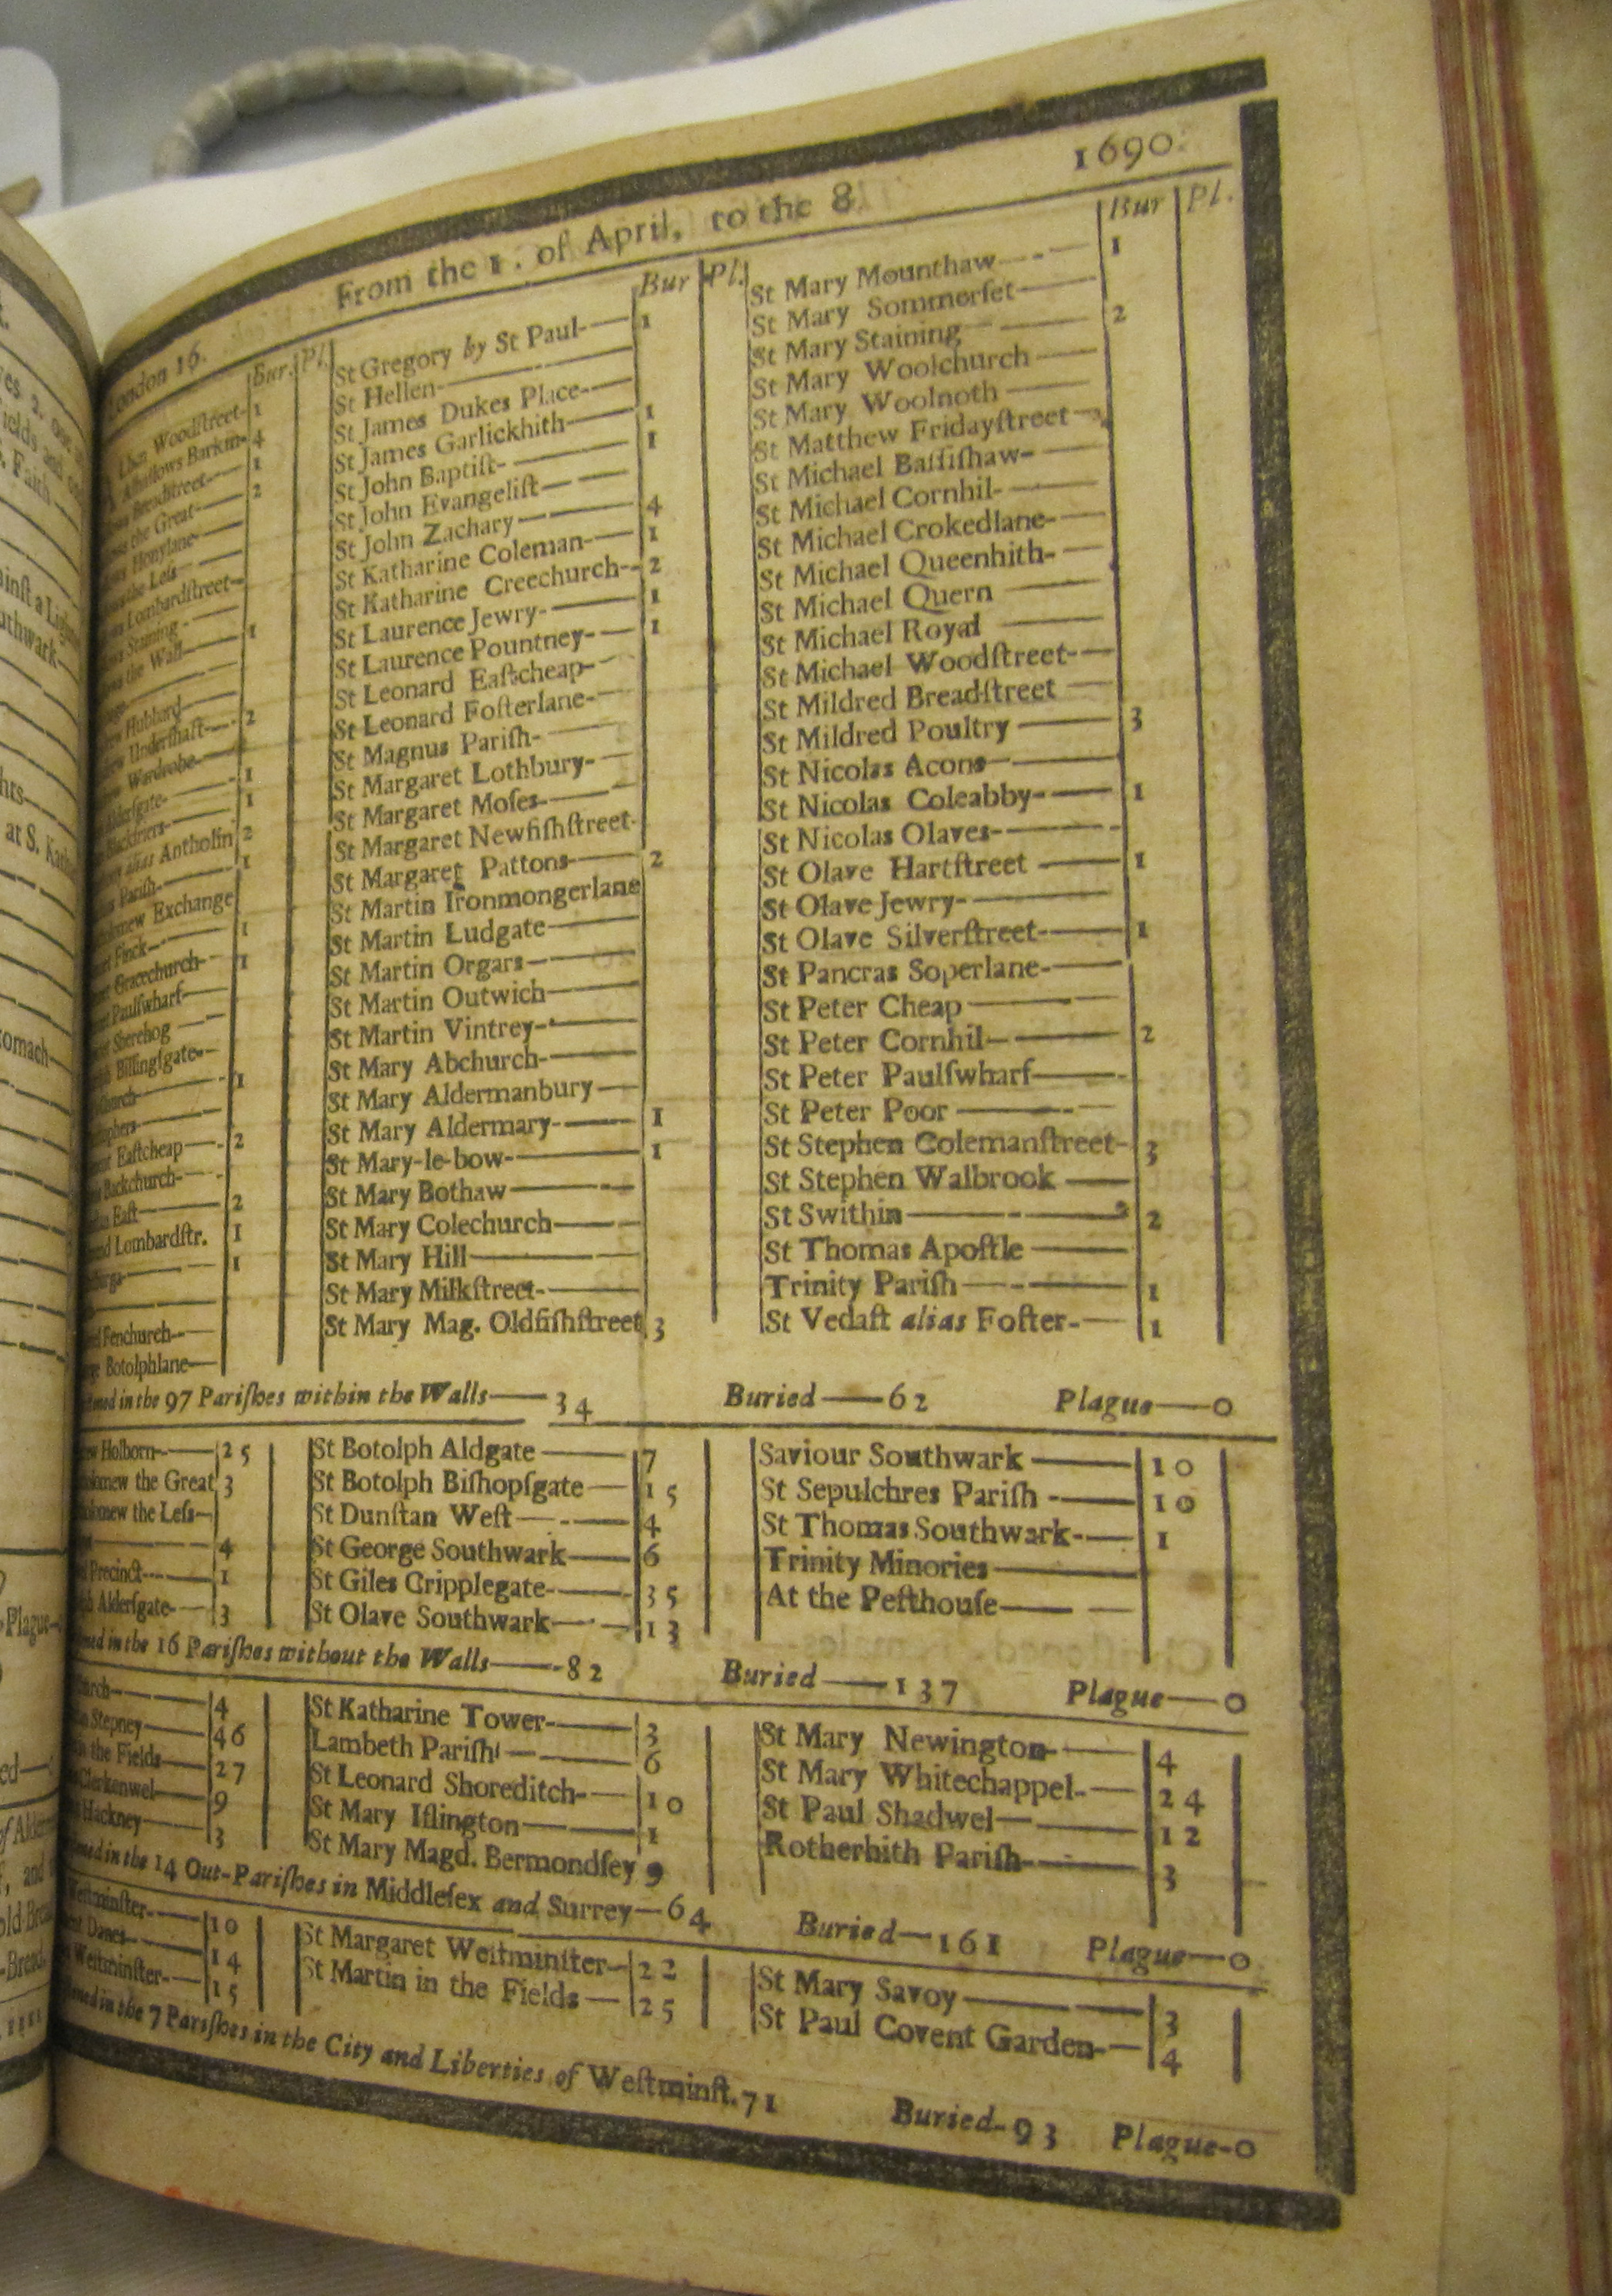 London 16. From the 1. of April, to the 8. 1690.
Bur. Pl.
Woodſtreet- 1
Alhallows Barkin- 4
Breadſtreet— 1
the Great— 2
Honylane-
the Leſs—
Lombardſtreet—
Staining -
the Wall— 1
Hubbard—
Underſhaft— 2
Wardrobe—
Alderſgate- 1
Blackfriers— 1
alias Antholin 2
Pariſh— 1
Exchange
Finck— 1
Gracechurch- 1
Paulſwharf—
Sherehog —
Billingſgate-
1
Eaſtcheap —- 2
Backchurch-
Eaſt— 2
Lombardſtr. 1
1
Fenchurch—
Botolphlane—
Bur Pl.
St Gregory by St Paul-— 1
St Hellen-——
St James Dukes Place-—
St James Garlickhith— 1
St John Baptiſt-—— 1
St John Evangeliſt——
St John Zachary—— 4
St Katharine Coleman-— 1
St Katharine Creechurch-- 2
St Laurence Jewry-—— 1
St Laurence Pountney-— 1
St Leonard Eaſtcheap-—
St Leonard Foſterlane-—
St Magnus Pariſh-——
St Margaret Lothbury-—
St Margaret Moſes-——
St Margaret Newfiſhſtreet-
St Margaret Pattons-—— 2
St Martin Ironmongerlane
St Martin Ludgate——
St Martin Orgars-——
St Martin Outwich——
St Martin Vintrey-——
St Mary Abchurch-——
St Mary Aldermanbury—
St Mary Aldermary-—— 1
St Mary-le-bow-—— 1
St Mary Bothaw——
St Mary Colechurch——
St Mary Hill———
St Mary Milkſtreet-——
St Mary Mag. Oldfiſhſtreet 3
Bur Pl.
St Mary Mounthaw—-— 1
St Mary Sommerſet——
St Mary Staining—— 2
St Mary Woolchurch——
St Mary Woolnoth——
St Matthew Fridayſtreet—
St Michael Baſſiſhaw-—
St Michael Cornhil-——
St Michael Crokedlane-—
St Michael Queenhith-—
St Michael Quern ——
St Michael Royal ——
St Michael Woodſtreet-—
St Mildred Breadſtreet —
St Mildred Poultry —— 3
St Nicolas Acons——
St Nicolas Coleabby-—— 1
St Nicolas Olaves-——
St Olave Hartſtreet —— 1
St Olave Jewry-——
St Olave Silverſtreet-—— 1
St Pancras Soperlane-——
St Peter Cheap ———
St Peter Cornhil—-—— 2
St Peter Paulſwharf——-
St Peter Poor ———
St Stephen Colemanſtreet- 3
St Stephen Walbrook ——
St Swithin——-—— 2
St Thomas Apoſtle ——
Trinity Pariſh —-—— 1
St Vedaſt alias Foſter-— 1
in the 97 Pariſhes within the Walls—— 34 Buried——62 Plague——0
Holborn—— 25
the Great 3
the Leſs—
4
Precinct-— 1
Alderſgate-— 3
St Botolph Aldgate —— 7
St Botolph Biſhopſgate— 15
St Dunſtan Weſt—-— 4
St George Southwark—— 6
St Giles Cripplegate-—— 35
St Olave Southwark—— 13
Saviour Southwark —— 10
St Sepulchres Pariſh -—— 10
St Thomas Southwark-— 1
Trinity Minories———
At the Peſthouſe—— —
in the 16 Pariſhes without the Walls——-82 Buried——137 Plague——0
4
Stepney—— 46
the Fields— 27
Clerkenwel— 9
Hackney—— 3
St Katharine Tower-—— 3
Lambeth Pariſh —— 6
St Leonard Shoreditch-— 10
St Mary Iſlington—— 1
St Mary Magd. Bermondſey 9
St Mary Newington-—— 4
St Mary Whitechappel-— 24
St Paul Shadwel——— 12
Rotherhith Pariſh-—— 3
in the 14 Out-Pariſhes in Middleſex and Surrey—64 Buried—161 Plague—0
Weſtminſter-— 10
Danes-—— 14
Weſtminſter-— 15
St Margaret Weſtminſter-- 22
St Martin in the Fields — 25
St Mary Savoy——— 3
St Paul Covent Garden-— 4
in the 7 Pariſhes in the City and Liberties of Weſtminſt. 71 Buried-93 Plague-0